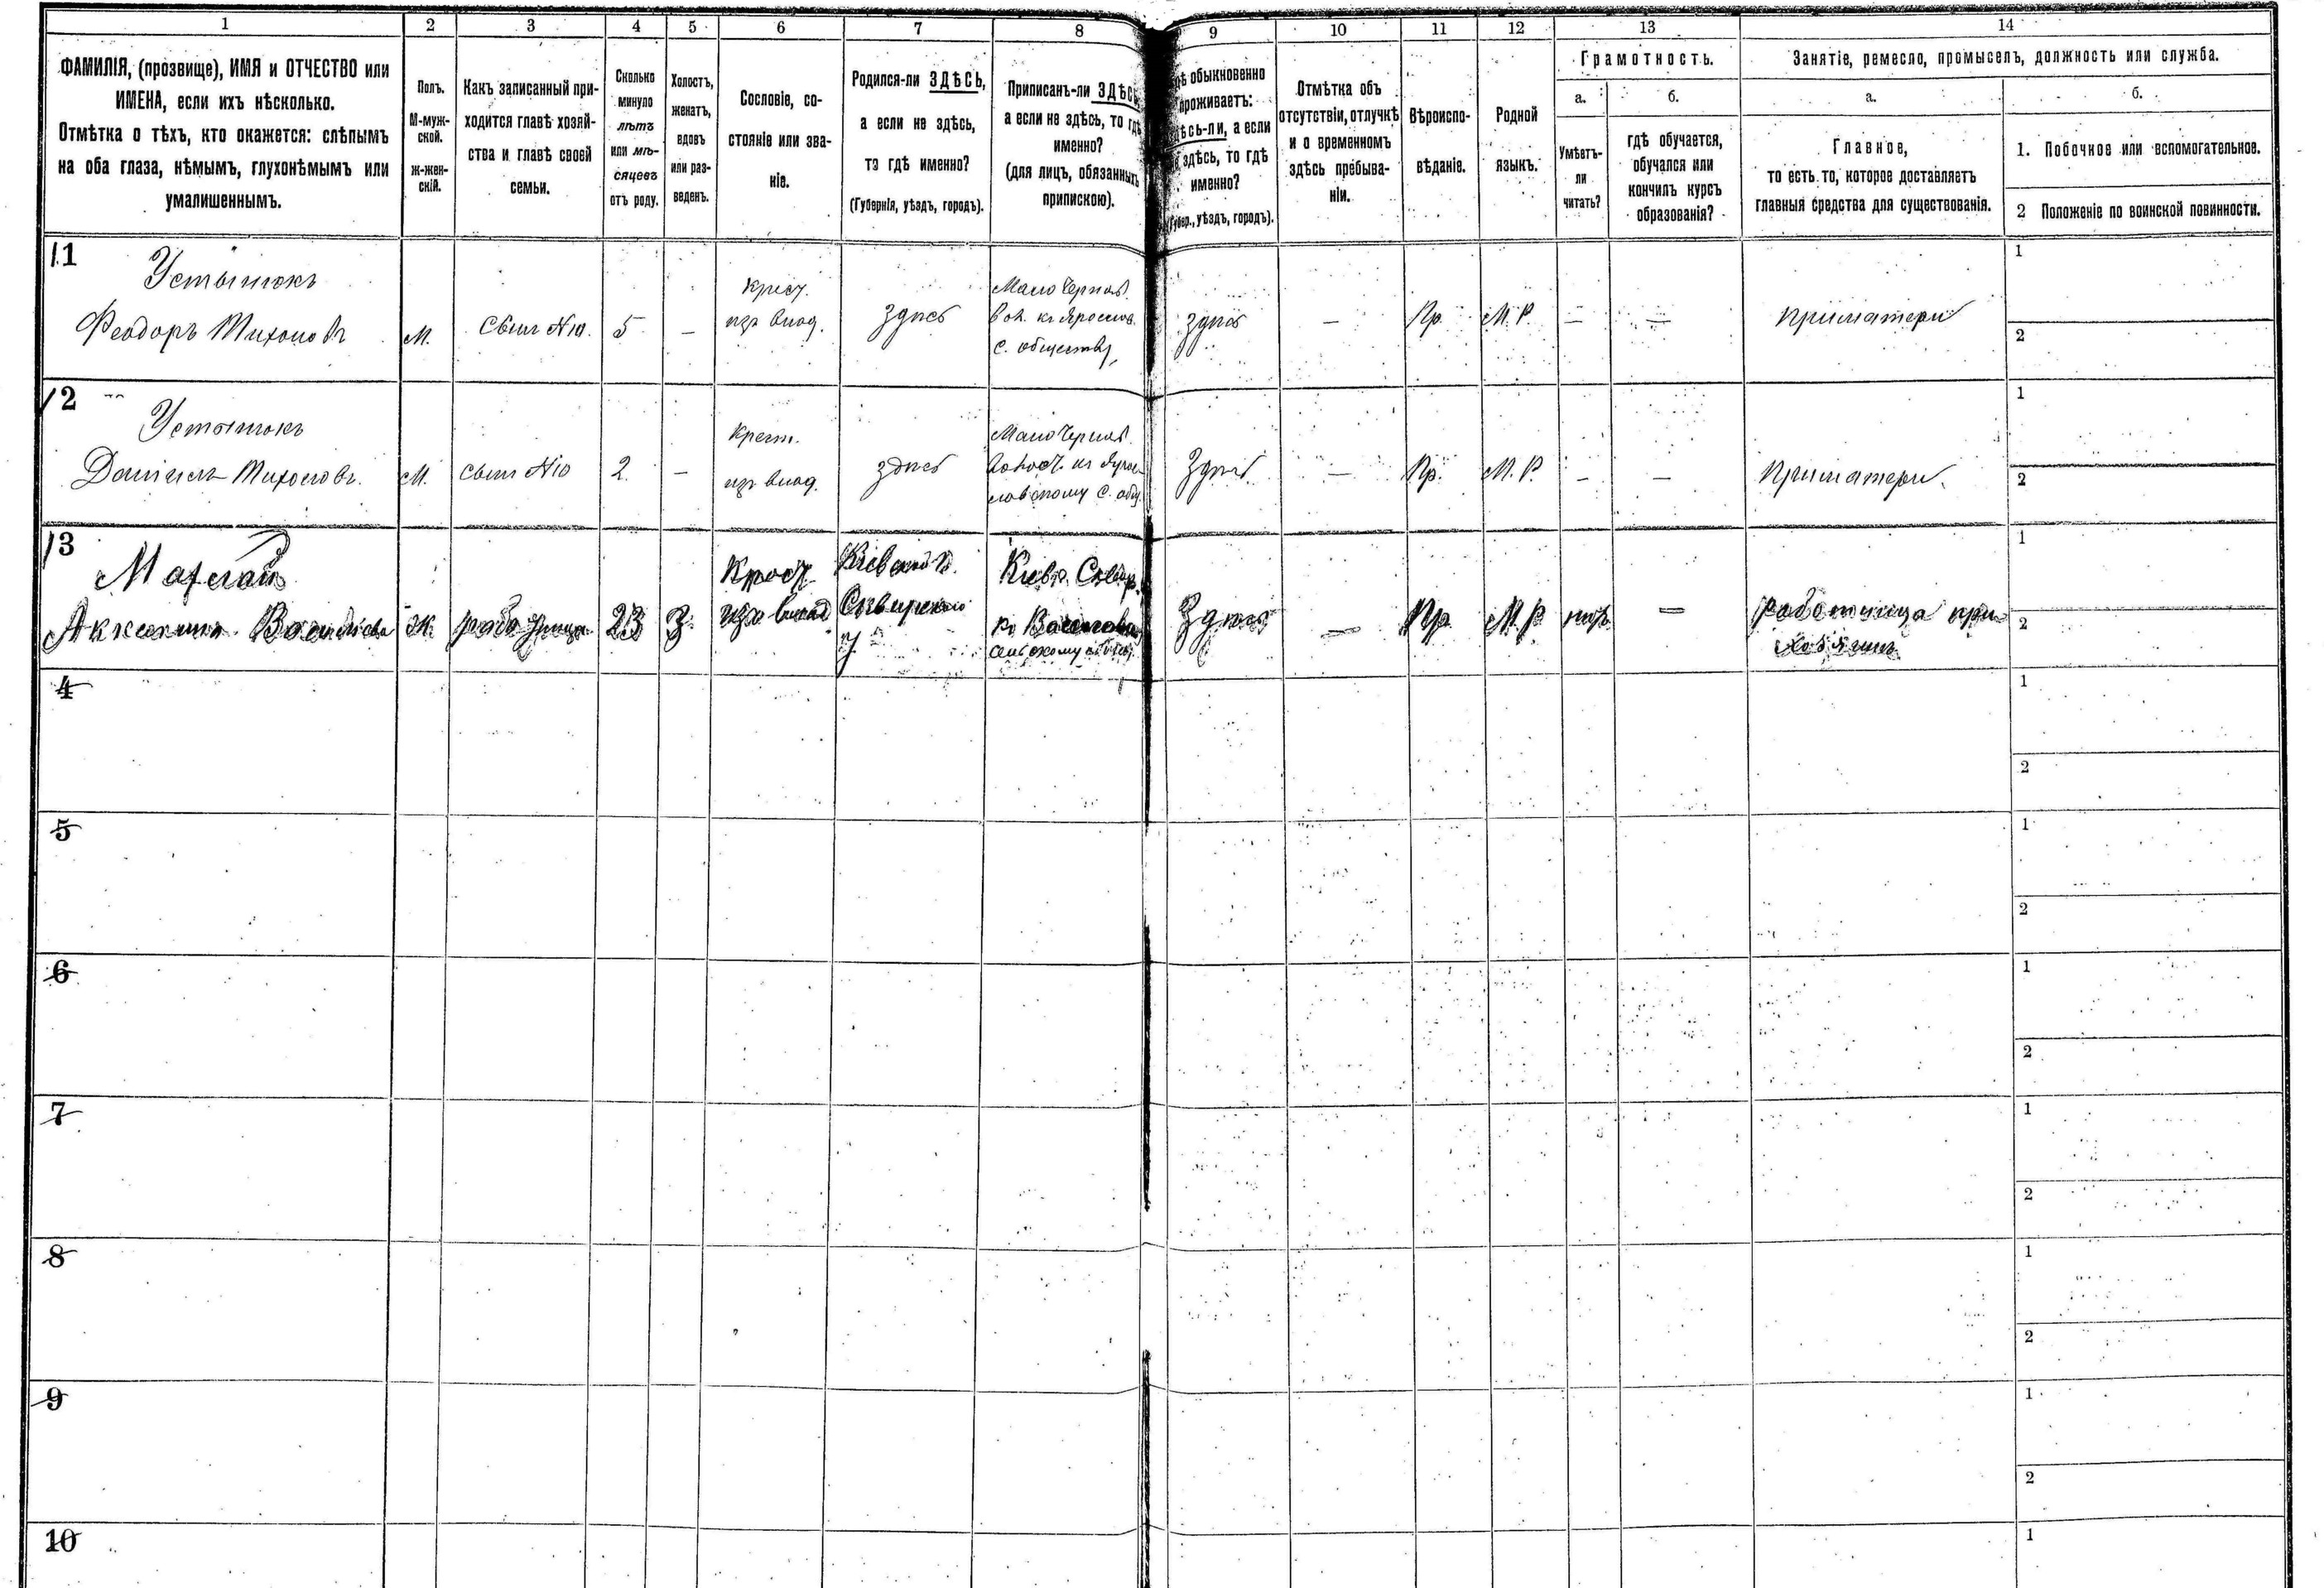 1
2
3
4
5
6
7
8
9
10
11
12
13
14
ФАМИЛІЯ, (прозвище), ИМЯ и ОТЧЕСТВО или
ИМЕНА, если ихъ нѣсколько.
Отмѣтка о тѣхъ, кто окажется: слѣпымъ
на оба глаза, нѣмымъ, глухонѣмымъ или
умалишеннымъ.
Полъ.
М-муж-
ской.
ж-жен-
скій.
Какъ записанный при-
ходится главѣ хозяй-
ства и главѣ своей
семьи.
Сколько
минуло
лѣтъ
или мѣ-
сяцевъ
отъ роду.
Холостъ,
женатъ,
вдовъ
или раз-
веденъ.
Сословіе, со-
стояніе или зва-
ніе.
Родился-ли ЗДѢСЬ,
а если не здѣсь,
то гдѣ именно?
(Губернія, уѣздъ, городъ).
Приписанъ-ли ЗДѢСЬ,
а если не здѣсь, то гдѣ
именно?
(для лицъ, обязанныхъ
припискою).
обыкновенно
проживаетъ:
а если
здѣсь, то гдѣ
именно?
уѣздъ, городъ).
Отмѣтка объ
отсутствіи, отлучкѣ
и о временномъ
здѣсь пребыва-
ніи.
Вѣроиспо-
вѣданіе.
Родной
языкъ.
Грамотность.
а.
б.
Умѣетъ-
ли
читать?
гдѣ обучается,
обучался или
кончилъ курсъ
образованія?
Занятіе, ремесло, промыселъ, должность или служба.
а.
б.
Главное,
то есть то, которое доставляетъ
главныя средства для существованія.
1. Побочное или вспомогательное.
2 Положеніе по воинской повинности.
11
Феодоръ Тихоновъ
М.
Сынъ №10.
5
—
крест.
изъ влад.
здѣсь
вол. къ
с. обществу
здѣсь
—
Пр.
М.Р.
—
—
при матери
1
2
12
Даніилъ Тихоновъ.
М.
сынъ №10
2
—
крест.
изъ влад.
здѣсь
с. общ.
здѣсь
—
Пр.
М.Р.
—
—
при матери.
1
2
13
Ж.
работница
23
З.
Крест.
изъ влад
Кіевской г.
Сквирскаго
у.
Кіев. Сквир.
сельскому
Здѣсь
—
Пр
М.Р
—
работница при
хозяинѣ
1
2
4
1
2
5
1
2
6
1
2
7
1
2
8
1
2
9
1
2
10
1